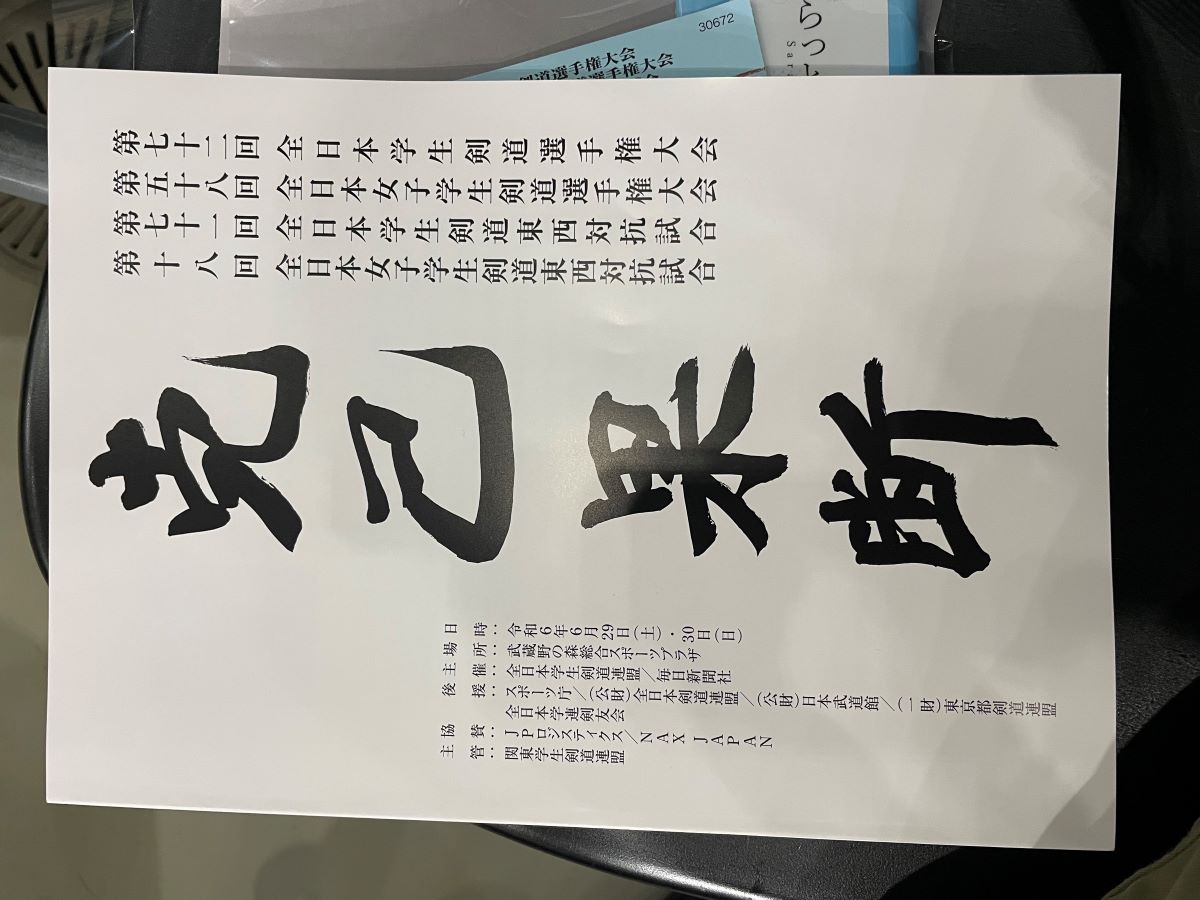 第七十二回 全日本学生剣道選手権大会
第五十八回 全日本女子学生剣道選手権大会
第七十一回 全日本学生剣道東西対抗試合
第十八回 全日本女子学生剣道東西対抗試合
克己果断
日時：令和6年6月29日（土）・30日（日）
場所：武蔵野の森総合スポーツプラザ
主催：全日本学生剣道連盟／毎日新聞社
後援：スポーツ庁／（公財）全日本剣道連盟／（公財）日本武道館／（一財）東京都剣道連盟
全日本学連剣友会
協賛：JPロジスティクス／NAX JAPAN
主管：関東学生剣道連盟
30672
剣道選手権大会
選手権大会